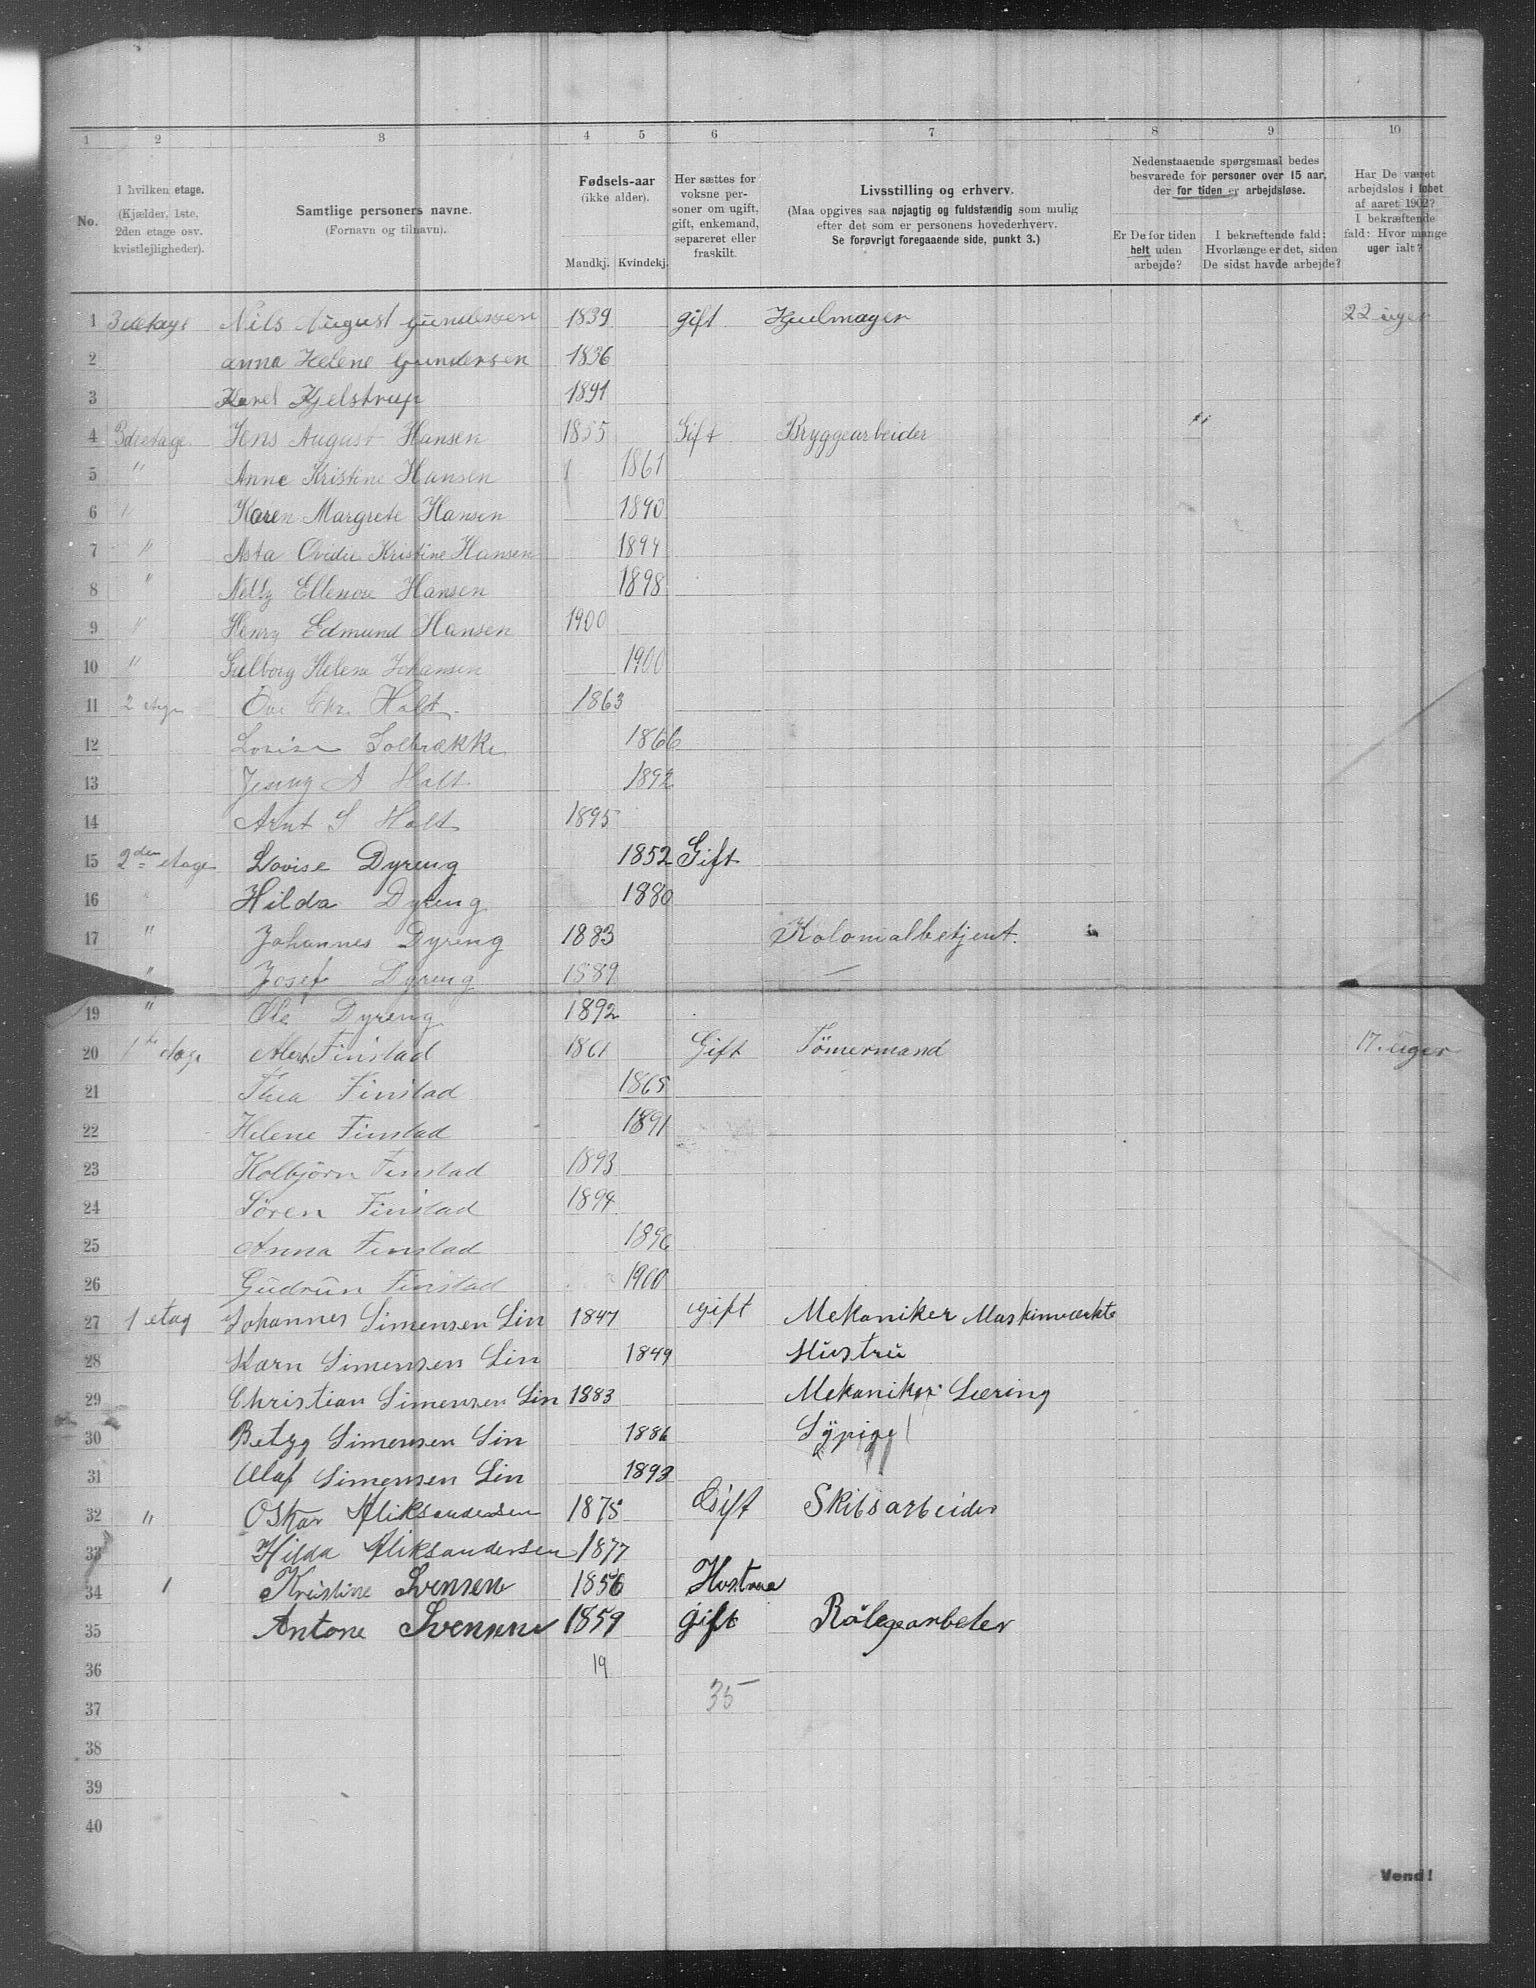 1 2 3 4 5 6 7 8 9 10
No.
I hvilken etage.
(Kjælder, 1ste,
2den etage osv.
kvistlejligheder).
Samtlige personers navne.
(Fornavn og tilnavn).
Fødsels-aar
(ikke alder).
Mandkj. Kvindekj.
Her sættes for
voksne per-
soner om ugift,
gift, enkemand,
separeret eller
fraskilt.
Livsstilling og erhverv.
(Maa opgives saa nøjagtig og fuldstændig som mulig
efter det som er personens hovederhverv.
Se forøvrigt foregaaende side, punkt 3.)
Nedenstaaende spørgsmaal bedes
besvarede for personer over 15 aar,
der for tiden er arbejdsløse.
Er De for tiden
helt uden
arbejde?
I bekræftende fald:
Hvorlænge er det, siden
De sidst havde arbejde?
Har De været
arbejdsløs i løbet
af aaret 1902?
I bekræftende
fald: Hvor mange
uger ialt?
1 3de etage Nils August Gundersen 1839 gift Hjulmager 22 uger
2 Anna Helene Gundersen 1836
3 Karel Kjelstrup 1891
4 3die etage Jens August Hansen 1855 Gift Bryggearbeider
5 " Anne Kristine Hansen 1861
6 " Karen Margrete Hansen 1890
7 " Asta Ovidie Kristine Hansen 1894
8 " Nelly Ellenore Hansen 1898
9 " Henry Edmund Hansen 1900
10 " Helene Johansen 1900
11 2 etage Ove Chr. Holt 1863
12 Lovise Solbrække 1866
13 Jenny A Holt 1892
14 Arnt S Holt 1895
15 2den etage Lovise Dyreng 1852 Gift
16 " Hilda Dyreng 1880
17 " Johannes Dyreng 1883 Kolonialbetjent.
" Josef Dyreng 1889 —
19 " Ole Dyreng 1892
20 1ste etage Finstad 1861 Gift Tömermand 17 uger
21 Thea Finstad 1865
22 Helene Finstad 1891
23 Kolbjörn Finstad 1893
24 Sören Finstad 1894
25 Anna Finstad 1896
26 Gudrun Finstad 1900
27 1 etag Johannes Simensen Lin 1847 gift Mekaniker Maskinværkte
28 Karn Simensen Lin 1849 Hustru
29 Christian Simensen Lin 1883 Mekaniker Læring
30 Betzy Simensen Lin 1886 Sypige
31 Olaf Simensen Lin 1893
32 " Oskar Aliksandersen 1875 Gift Skibsarbeider
33 Hilda Aliksandersen 1877
34 " Kristine Svensen 1856 Hustrue
35 Antone Svensen 1859 gift
36 19
37 35
38
39
40
Vend!